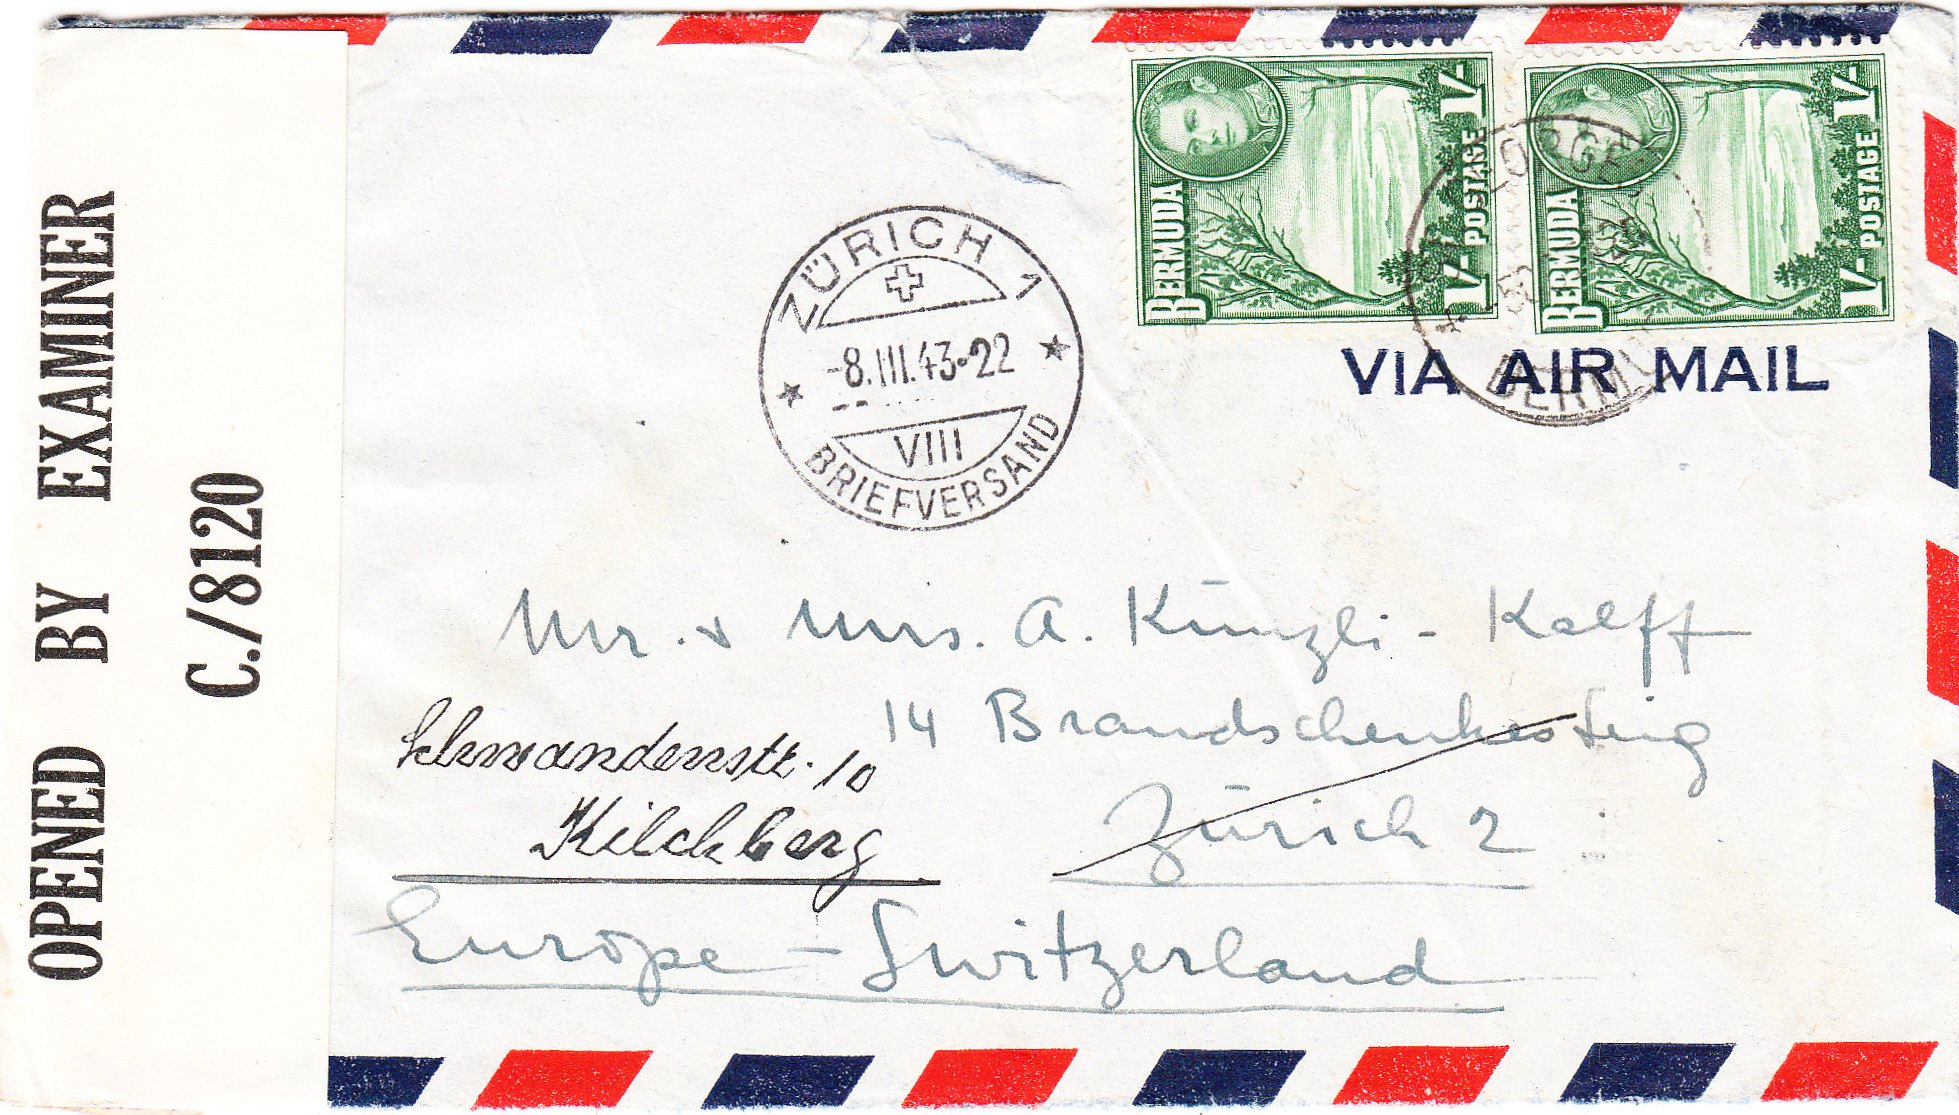 OPENED BY EXAMINER
C./8120
BERMUDA
POSTAGE
1/-
1/-
BERMUDA
POSTAGE
1/-
1/-
VIA AIR MAIL
ZÜRICH 1
-8.III.43·22
VIII
BRIEFVERSAND
Mr. & Mrs. A. Künzli - Kalff
14 Brandschenkesteig
Zürich 2
Schwandenstr. 10
Kilchberg
Europe - Switzerland